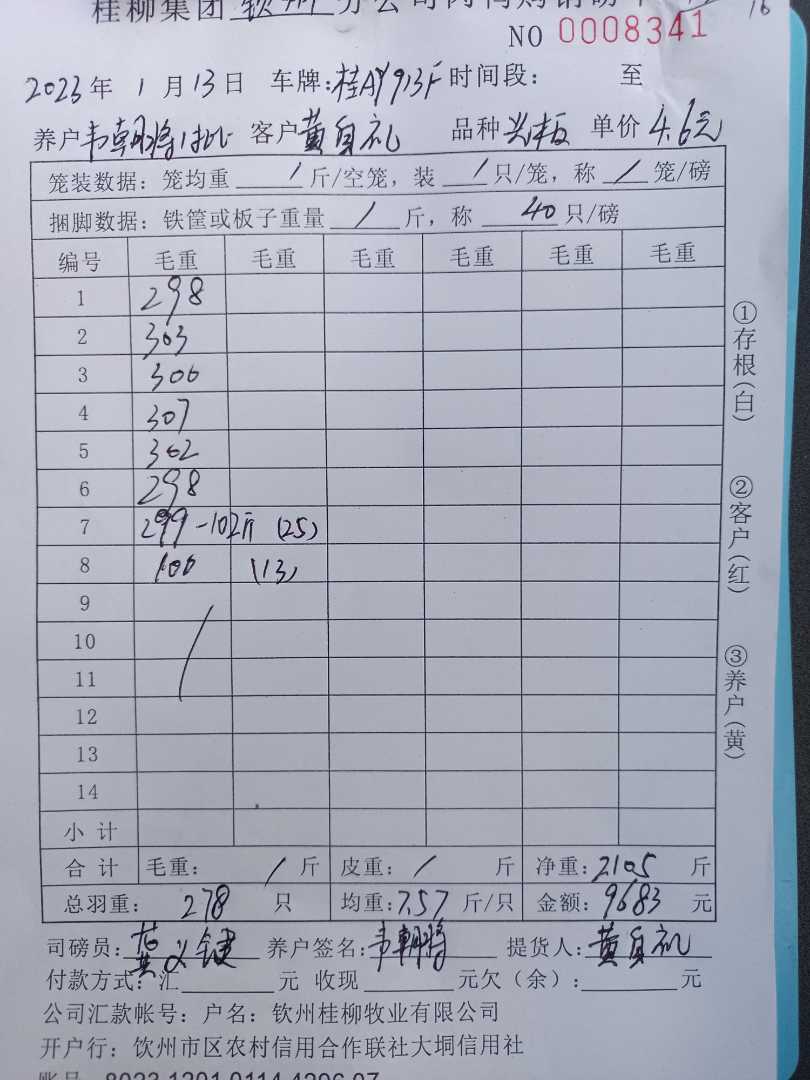 桂柳集团 钦州 分公司肉
NO 0008341
2023年 1月13日 车牌:桂AY913F 时间段: 至
养户 韦朝将 客户 黄自礼 品种 单价 4.6元
笼装数据:笼均重 / 斤/空笼,装 / 只/笼,称 / 笼/磅
捆脚数据:铁筐或板子重量 / 斤,称 40 只/磅
编号 毛重 毛重 毛重 毛重 毛重 毛重
1 298
2 303
3 306
4 307
5 302
6 298
7 299-102斤 (25)
8 100 (13)
9
10
11
12
13
14
小 计
合 计 毛重: / 斤 皮重: / 斤 净重:2105 斤
总羽重: 278 只 均重:7.57 斤/只 金额:9683 元
司磅员:黄义键 养户签名:韦朝将 提货人:黄自礼
付款方式:汇 元 收现 元欠(余): 元
公司汇款帐号:户名:钦州桂柳牧业有限公司
开户行:钦州市区农村信用合作联社大垌信用社
账号 8023 1201 0114 4296 07
①存根(白)
②客户(红)
③养户(黄)